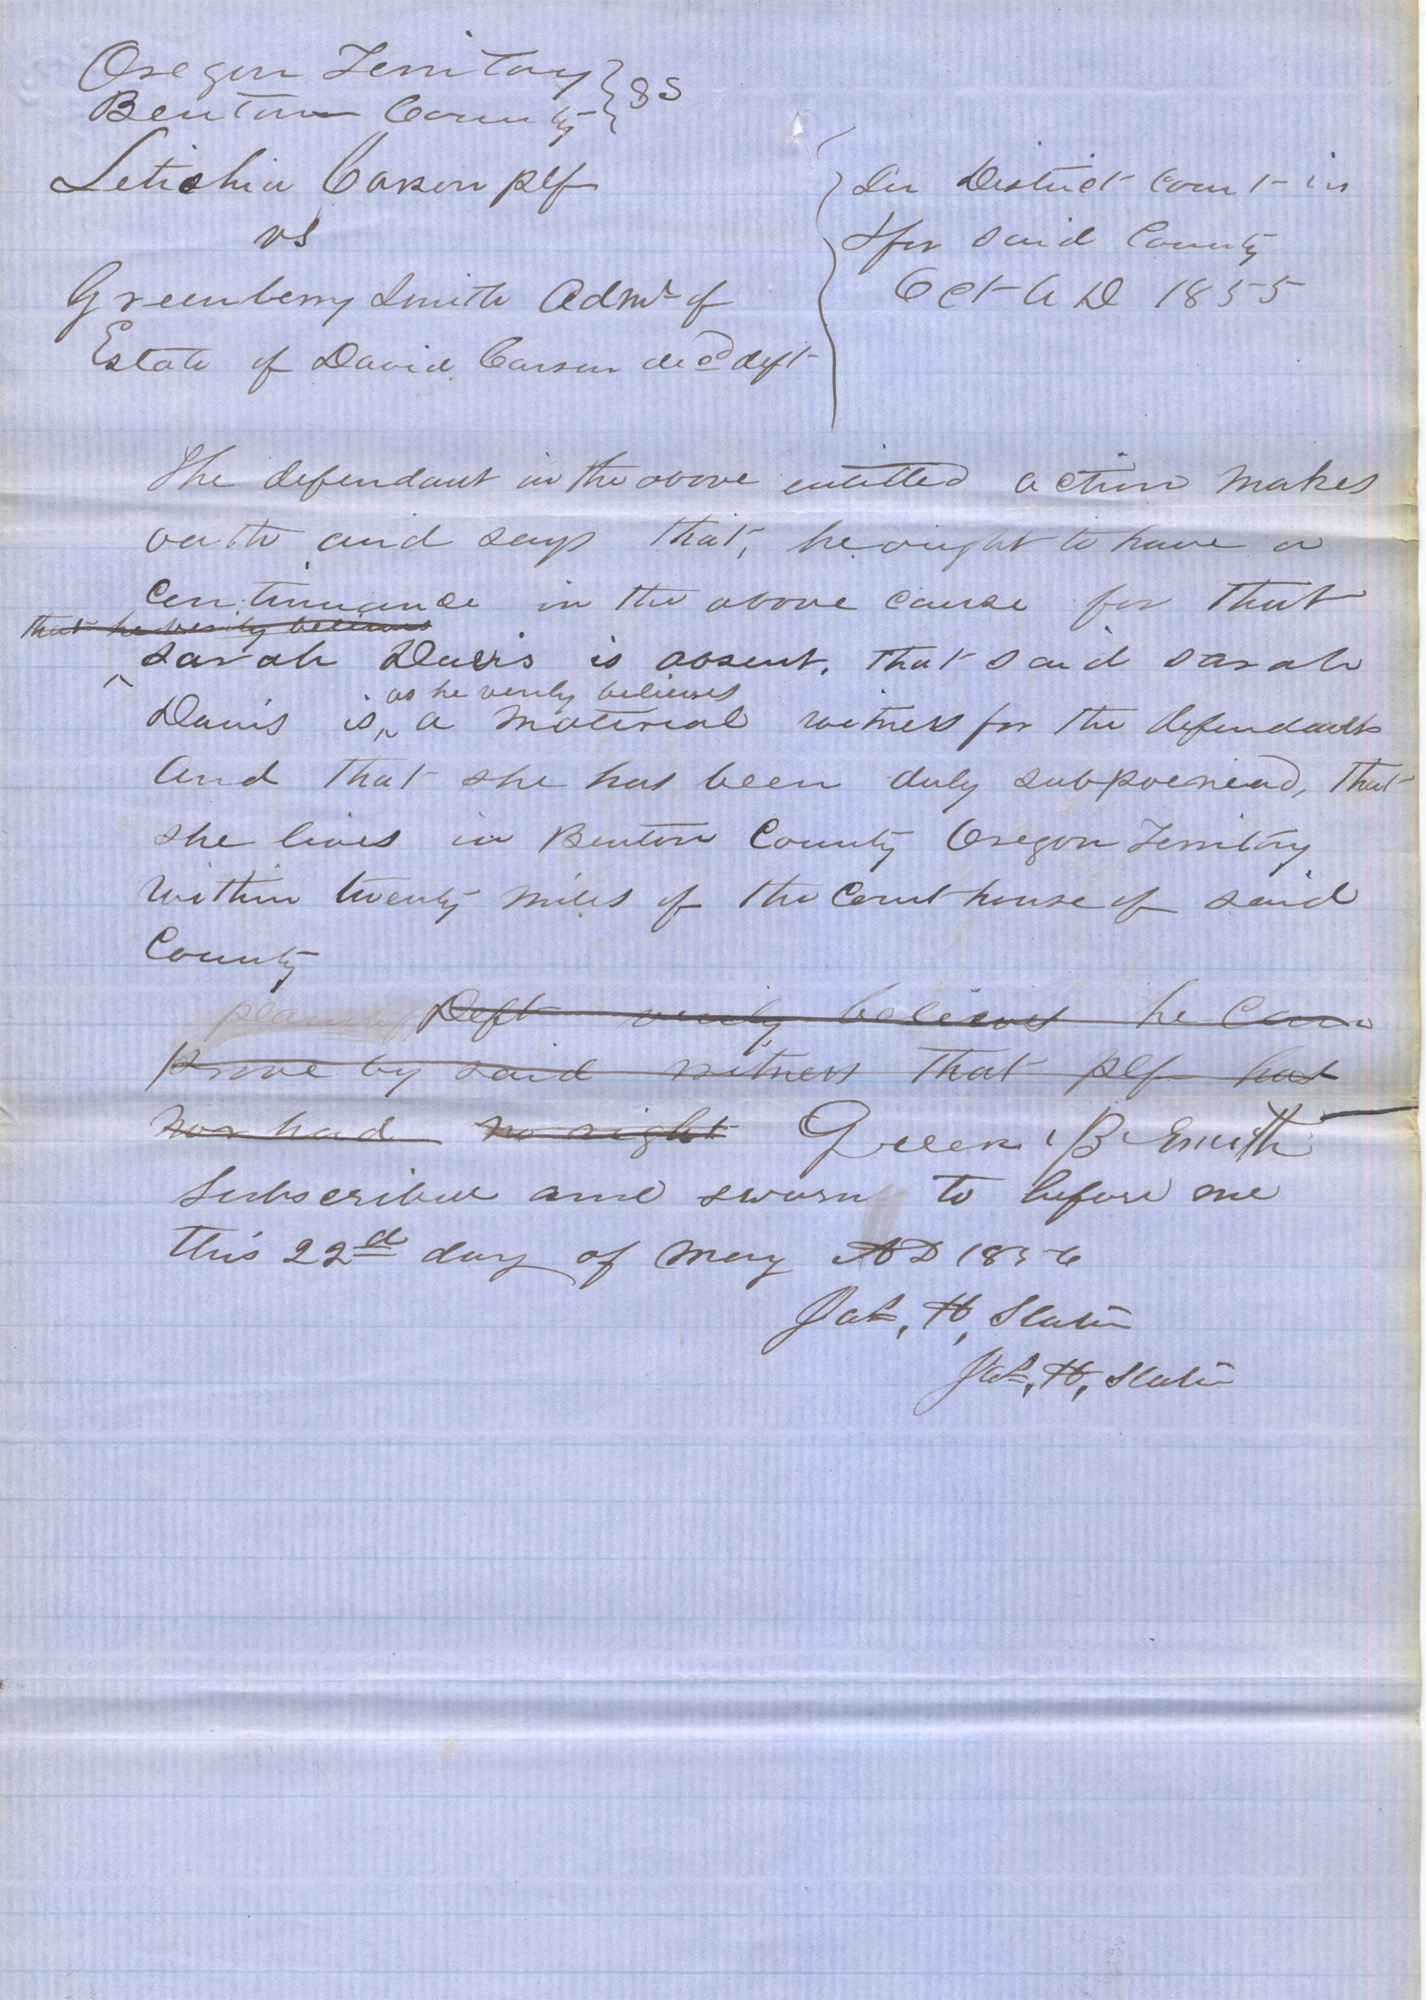 Oregon Territory } SS
Benton County
Letichia Carson plf
vs
Greenberry Smith Admr of
Estate of David Carson decd deft
In District Court in
& for said County
Oct A D 1855
The defendant in the above entitled action makes
oath and says that, he ought to have a
continuance in the above cause for that
that he verily believes
Sarah Davis is absent. that said Sarah
as he verily believes
Davis is a material witness for the defendant
And that she has been duly subpoenead, that
she lives in Benton County Oregon Territory
within twenty miles of the Court house of said
County
Deft verily believes he can
prove by said witness that plf has
nor had no right Green B Smith
Subscribed and sworn to before me
this 22d day of May AD 1856
Jas. H. Slater
Jas. H. Slater